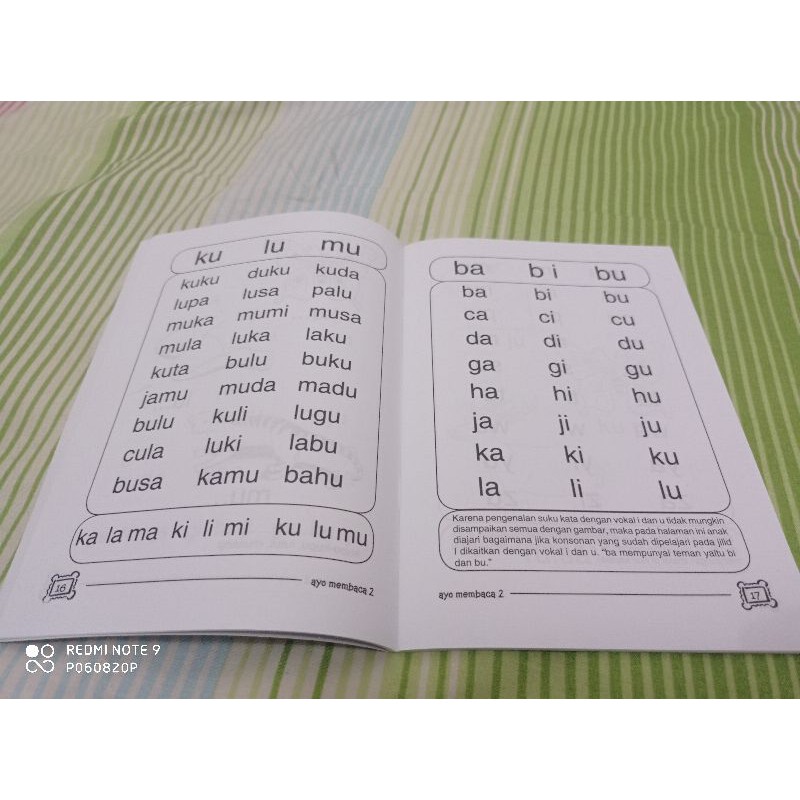 ku lu mu
kuku duku kuda
lupa lusa palu
muka mumi musa
mula luka laku
kuta bulu buku
jamu muda madu
bulu kuli lugu
cula luki labu
busa kamu bahu
ka la ma ki li mi ku lu mu
16 ayo membaca 2
ba b i bu
ba bi bu
ca ci cu
da di du
ga gi gu
ha hi hu
ja ji ju
ka ki ku
la li lu
Karena pengenalan suku kata dengan vokal i dan u tidak mungkin
disampaikan semua dengan gambar, maka pada halaman ini anak
diajari bagaimana jika konsonan yang sudah dipelajari pada jilid
I dikaitkan dengan vokal i dan u. "ba mempunyai teman yaitu bi
dan bu."
ayo membaca 2 17
REDMI NOTE 9
P060820P